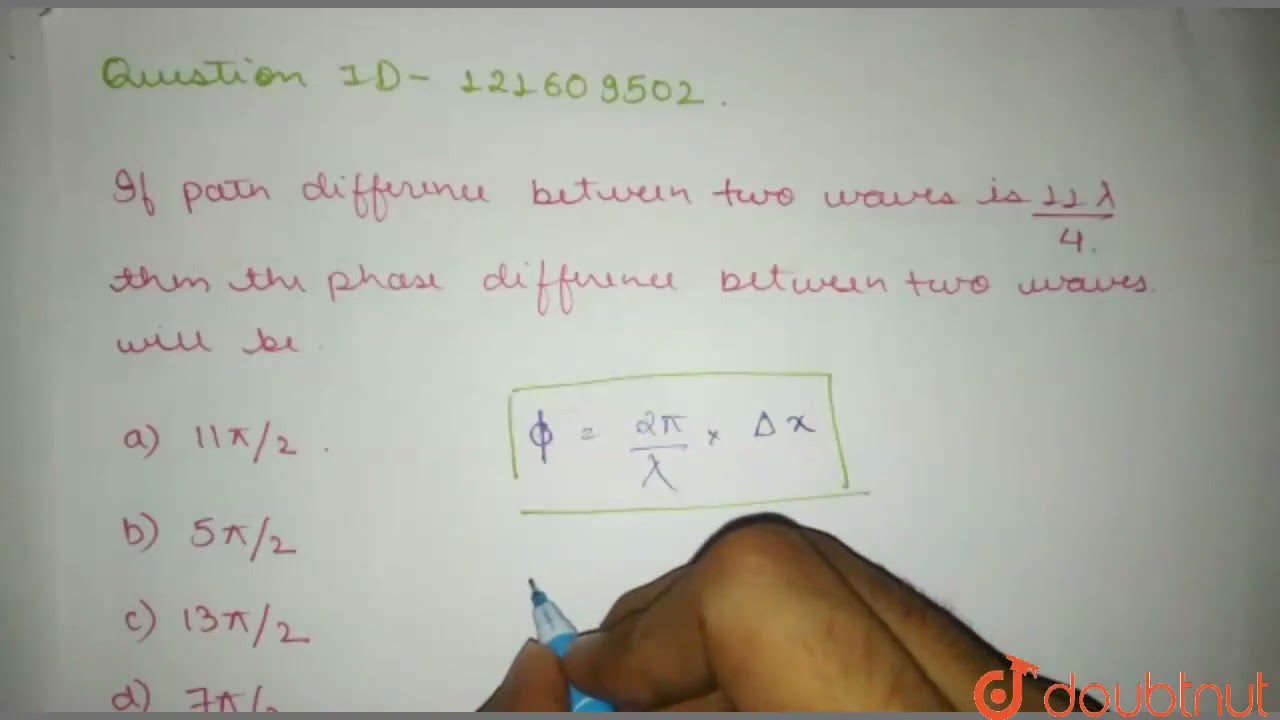 Question ID - 121609502.
If path difference between two waves is 11λ/4.
then the phase difference between two waves.
will be
a) 11π/2.
b) 5π/2
c) 13π/2
d) 7π/2
ϕ = 2π/λ × Δx
doubtnut